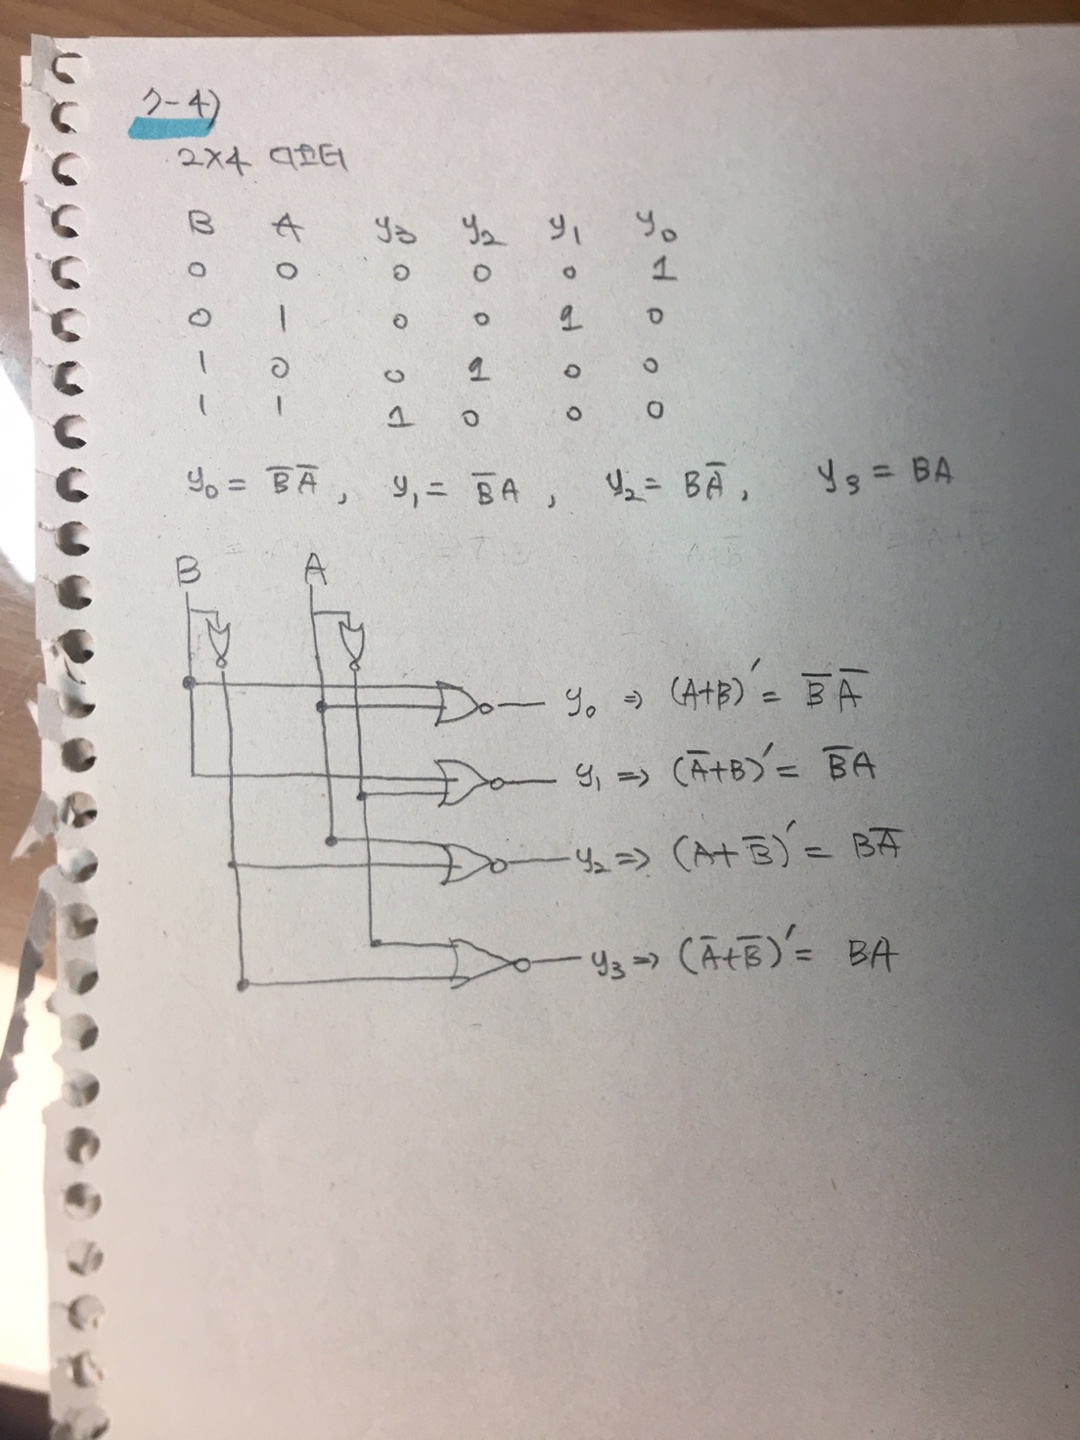 2-4)
2x4 디코더
B A y₃ y₂ y₁ y₀
0 0 0 0 0 1
0 1 0 0 1 0
1 0 0 1 0 0
1 1 1 0 0 0
y₀ = B̅A̅, y₁ = B̅A, y₂ = BA̅, y₃ = BA
B A
y₀ ⇒ (A+B)′ = B̅A̅
y₁ ⇒ (A̅+B)′ = B̅A
y₂ ⇒ (A+B̅)′ = BA̅
y₃ ⇒ (A̅+B̅)′ = BA